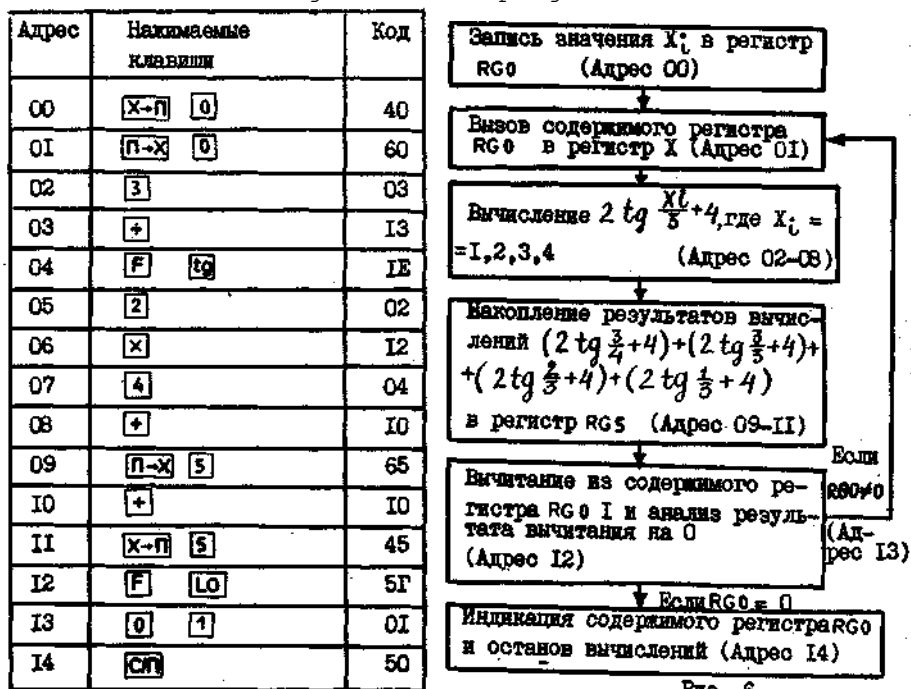 Адрес Нажимаемые клавиши Код
00 X→П 0 40
0I П→X 0 60
02 3 03
03 ÷ I3
04 F tg IE
05 2 02
06 × I2
07 4 04
08 + I0
09 П→X 5 65
I0 + I0
II X→П 5 45
I2 F L0 5Г
I3 0 1 0I
I4 С/П 50
Запись значения Xi в регистр
RG0 (Адрес 00)
Вызов содержимого регистра
RG0 в регистр X (Адрес 0I)
Вычисление 2 tg Xi/3 +4, где Xi =
=I,2,3,4 (Адрес 02-08)
Накопление результатов вычис-
лений (2 tg 3/4 +4)+(2 tg 3/3 +4)+
+(2 tg 2/3 +4)+(2 tg 1/3 +4)
в регистр RG5 (Адрес 09-II)
Вычитание из содержимого ре-
гистра RG0 I и анализ резуль-
тата вычитания на 0
(Адрес I2)
Если
RG0≠0
(Ад-
рес I3)
Если RG0 = 0
Индикация содержимого регистра RG0
и останов вычислений (Адрес I4)